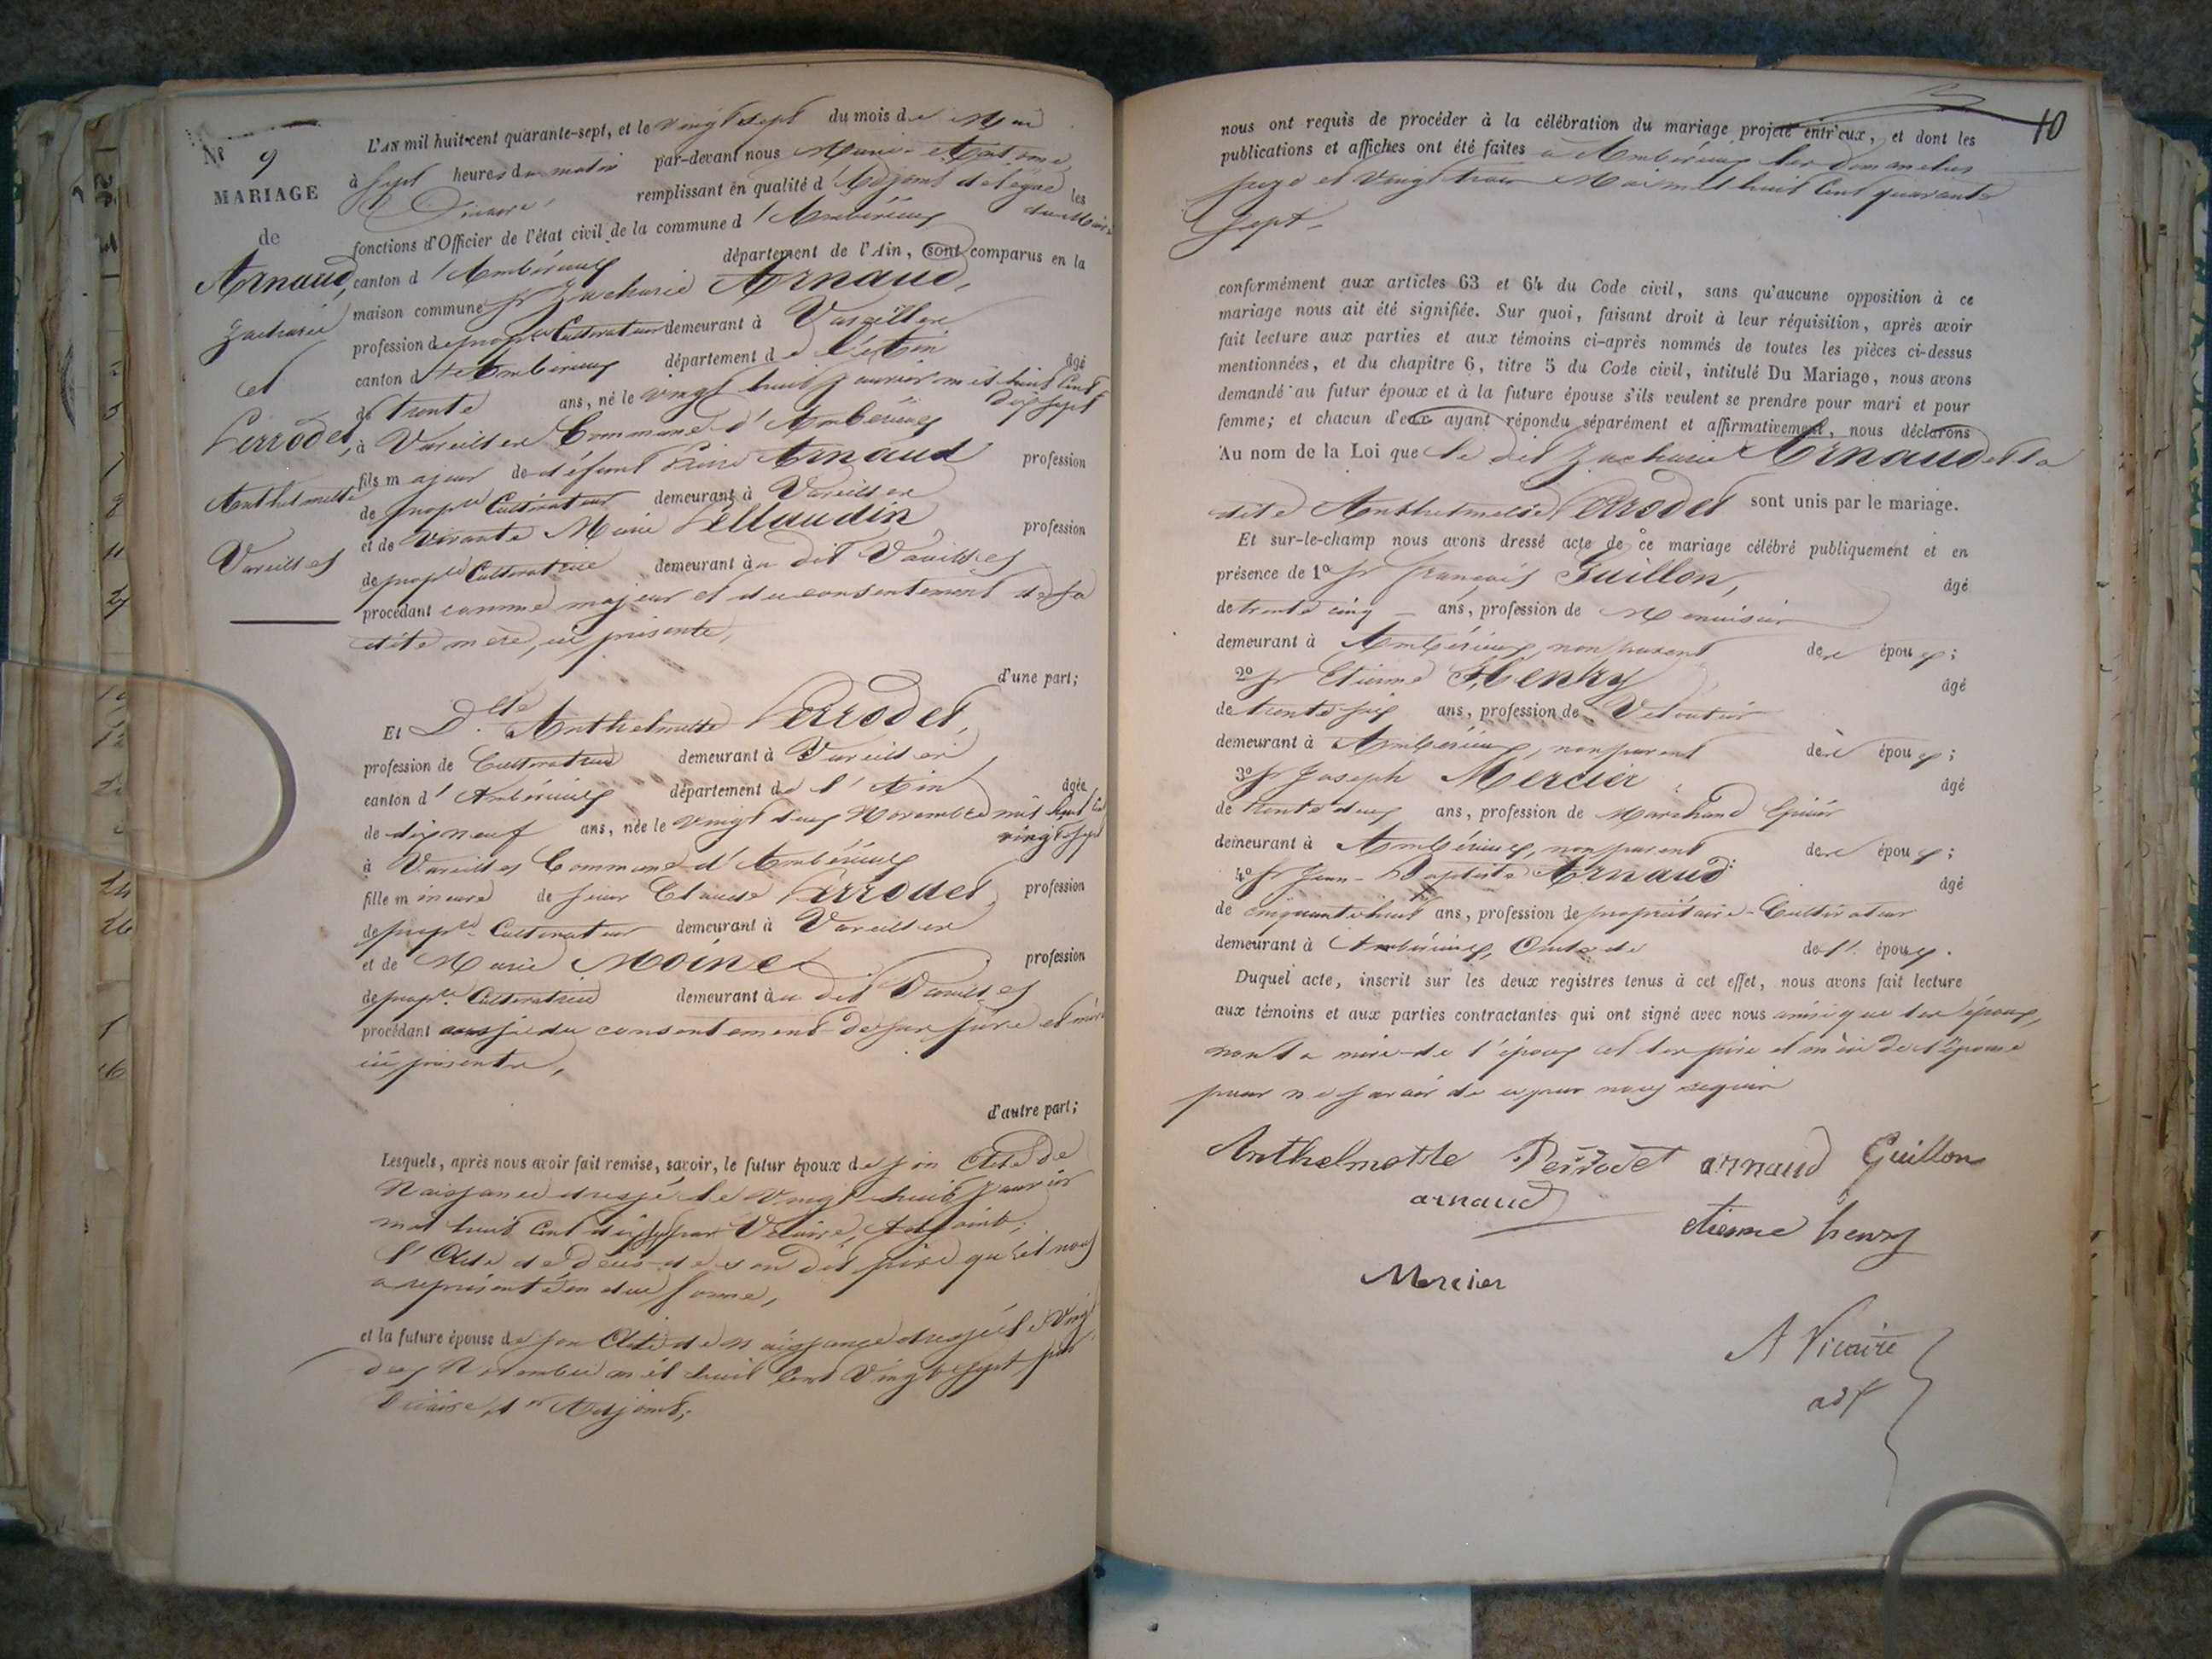 Nº 9
MARIAGE
de
Arnaud,
Zacharie
et
Perrodet,
Anthelmette
Vareilles
L'AN mil huit-cent quarante-sept, et le vingt sept du mois de Mai
à sept heures du matin par-devant nous Marie-Antoine
Vicaire remplissant en qualité d'Adjoint délégué du Maire les
fonctions d'Officier de l'état civil de la commune d'Ambérieux
canton d'Ambérieux département de l'Ain, sont comparus en la
maison commune Sr Zacharie Arnaud,
profession de propre Cultivateur demeurant à Vareilles
canton d'Ambérieux département de l'Ain âgé
de trente ans, né le vingt huit Janvier mil huit Cent dix sept
à Vareilles Commune d'Ambérieux
fils majeur de défunt Pierre Arnaud profession
de propre Cultivateur demeurant à Vareilles
et de vivante Marie Bellaudin profession
de propre Cultivatrice demeurant au dit Vareilles
procédant comme majeur et du consentement de sa
dite mère, ici présente,
d'une part;
Et Dlle Anthelmette Perrodet,
profession de Cultivatrice demeurant à Vareilles
canton d'Ambérieux département de l'Ain âgée
de dix neuf ans, née le vingt deux Novembre mil huit Cent vingt sept
à Vareilles Commune d'Ambérieux
fille mineure de sieur Claude Perrodet profession
de propre Cultivateur demeurant à Vareilles
et de Marie Moine profession
de propre Cultivatrice demeurant au dit Vareilles
procédant du consentement de ses père et mère
ici présents,
d'autre part;
Lesquels, après nous avoir fait remise, savoir, le futur époux de son Acte de
Naissance dressé le vingt-huit Janvier
mil huit Cent dix sept par Vicaire, Adjoint;
l'Acte de Décès de son dit père qu'il nous
a représenté en due forme,
et la future épouse de son Acte de Naissance dressé le Vingt
deux Novembre mil huit Cent Vingt sept, par
Vicaire, Adjoint;
10
nous ont requis de procéder à la célébration du mariage projeté entr'eux, et dont les
publications et affiches ont été faites à Ambérieux les dimanches
seize et Vingt trois Mai mil huit Cent quarante
Sept.
conformément aux articles 63 et 64 du Code civil, sans qu'aucune opposition à ce
mariage nous ait été signifiée. Sur quoi, faisant droit à leur réquisition, après avoir
fait lecture aux parties et aux témoins ci-après nommés de toutes les pièces ci-dessus
mentionnées, et du chapitre 6, titre 5 du Code civil, intitulé Du Mariage, nous avons
demandé au futur époux et à la future épouse s'ils veulent se prendre pour mari et pour
femme; et chacun d'eux ayant répondu séparément et affirmativement, nous déclarons
Au nom de la Loi que le dit Zacharie Arnaud et la
dite Anthelmette Perrodet sont unis par le mariage.
Et sur-le-champ nous avons dressé acte de ce mariage célébré publiquement et en
présence de 1º Sr François Guillon, âgé
de trente cinq ans, profession de Menuisier
demeurant à Ambérieux, non parent des époux;
2º Sr Etienne Henry âgé
de trente six ans, profession de
demeurant à Ambérieux, non parent des époux;
3º Sr Joseph Mercier âgé
de trente deux ans, profession de Marchand Epicier
demeurant à Ambérieux, non parent des époux;
4º Sr Jean-Baptiste Arnaud âgé
de cinquante huit ans, profession de propriétaire-Cultivateur
demeurant à Ambérieux, Oncle de de l'époux.
Duquel acte, inscrit sur les deux registres tenus à cet effet, nous avons fait lecture
aux témoins et aux parties contractantes qui ont signé avec nous ainsi que les époux,
non la mère de l'époux et les père et mère de l'épouse
pour ne savoir de ce par nous requis
Anthelmette Perrodet arnaud Guillon
arnaud
etienne henry
Mercier
A Vicaire
adj